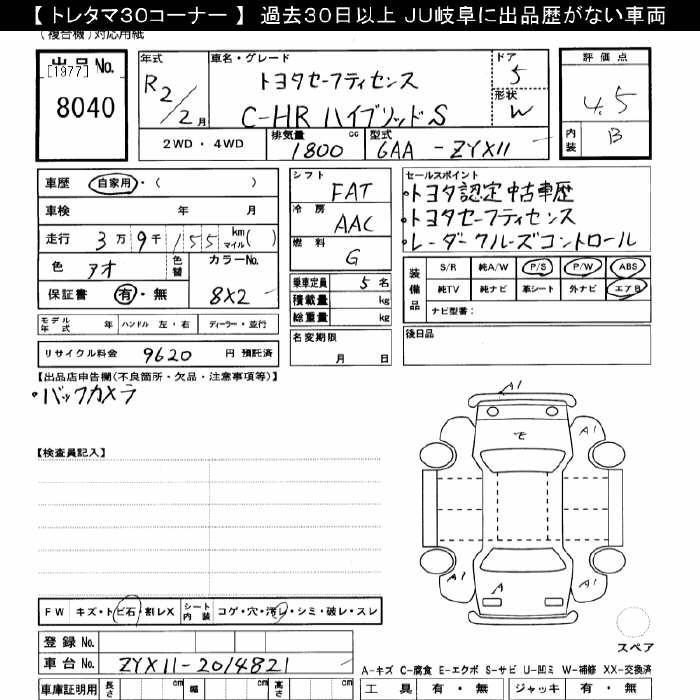 【 トレタマ30コーナー 】 過去30日以上 JU岐阜に出品歴がない車両
(複合機)対応用紙
出品 No. [1977] 8040
年式 R2/2月
車名・グレード トヨタセーフティセンス
C-HR ハイブリッドS
ドア 5
形状 W
評価点 4.5
内装 B
2WD・4WD 排気量 1800 cc 型式 6AA-ZYX11
車歴 自家用・( )
車検 年 月
走行 3万9千155 km マイル( )
色 アオ 色替 カラーNo. 8X2
保証書 有・無
シフト FAT
冷房 AAC
燃料 G
乗車定員 5名
積載量 kg
総重量 kg
セールスポイント
・トヨタ認定中古車歴
・トヨタセーフティセンス
・レーダークルーズコントロール
装備品 S/R 純A/W P/S P/W ABS
純TV 純ナビ 革シート 外ナビ エアB
ナビ型番:
モデル年式 年 ハンドル 左・右 ディーラー・並行
名変期限 月 日
後日品
リサイクル料金 9620 円 預託済
【出品店申告欄(不良箇所・欠品・注意事項等)】
・バックカメラ
【検査員記入】
A1
E
A1
A1
A1
A
A1
スペア
FW キズ・トビ石・割レX シート内装 コゲ・穴・汚レ・シミ・破レ・スレ
登録 No.
車台 No. ZYX11-2014821
A-キズ C-腐食 E-エクボ S-サビ U-凹ミ W-補修 XX-交換済
車庫証明用 長さ cm 幅 cm 高さ cm
工具 有・無 ジャッキ 有・無